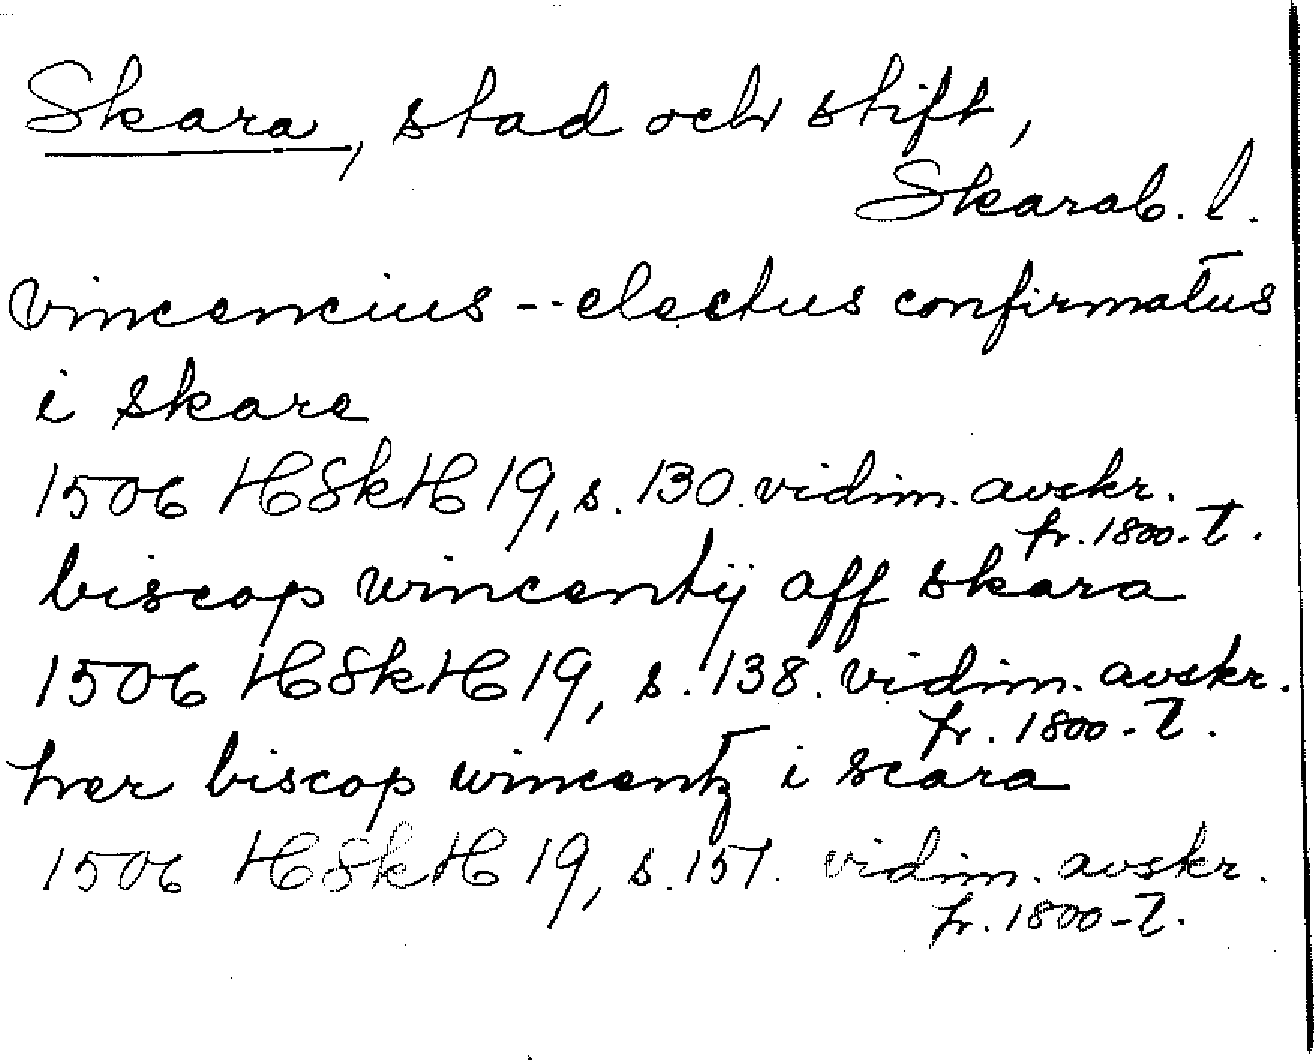 Skara, stad och stift,
Skarab. l.
vincencius -- electus confirmatus
i skare
1506 HSkH 19, s. 130. vidim. avskr.
fr. 1800-t.
biscop vincentij aff skara
1506 HSkH 19, s. 138. vidim. avskr.
fr. 1800-t.
her biscop vincentz i scara
1506 HSkH 19, s. 157. vidim. avskr.
fr. 1800-t.